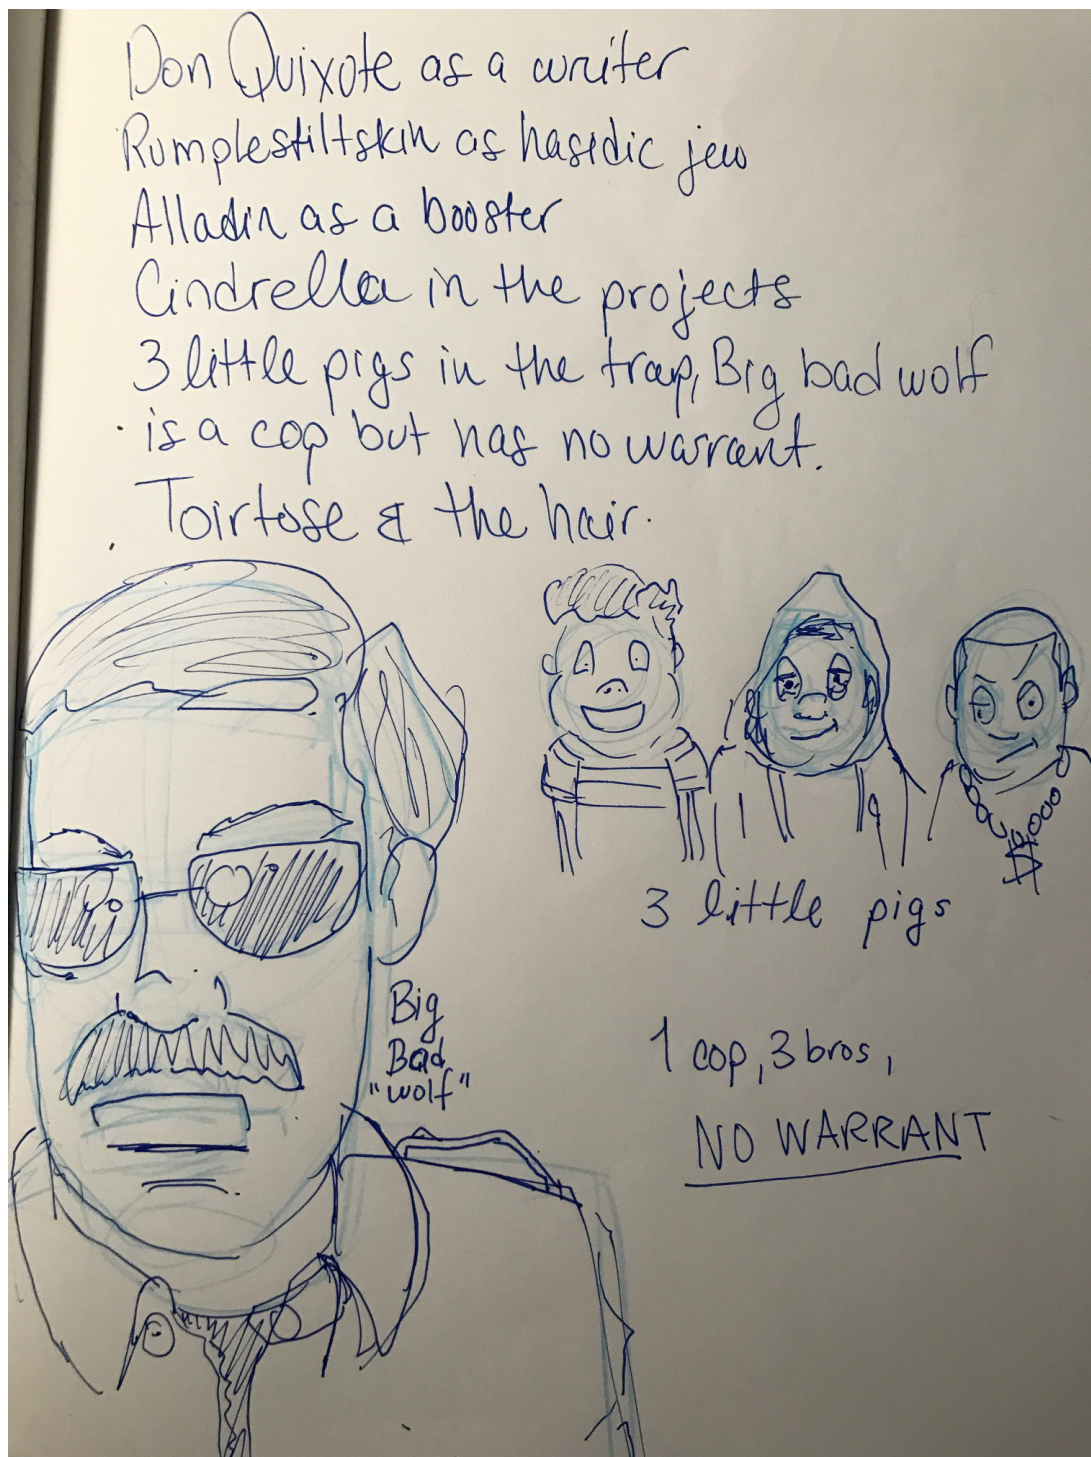 Don Quixote as a writer
Rumplestiltskin as hasedic jew
Alladin as a booster
Cindrella in the projects
3 little pigs in the trap, Big bad wolf
is a cop but has no warrant.
Toirtose & the hair.
3 little pigs
Big
Bad
"wolf"
1 cop, 3 bros,
NO WARRANT